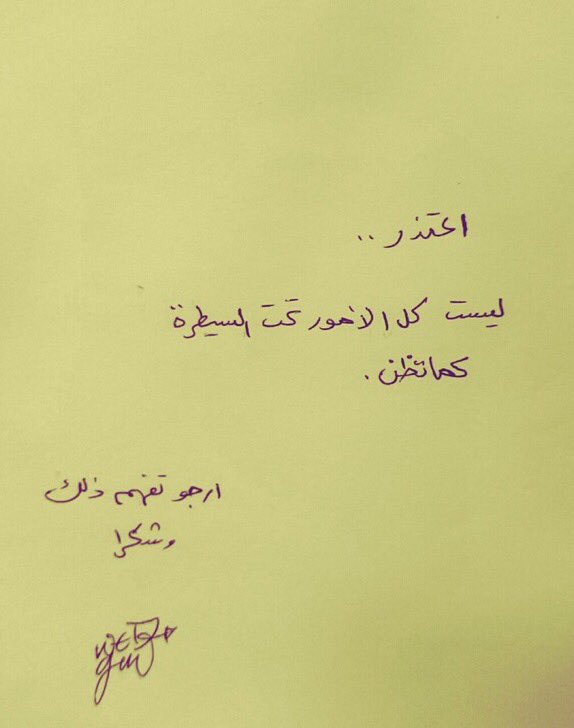 اعتذر ..
ليست كل الأمور تحت السيطرة
كما تظن .
ارجو تفهم ذلك
وشكرا